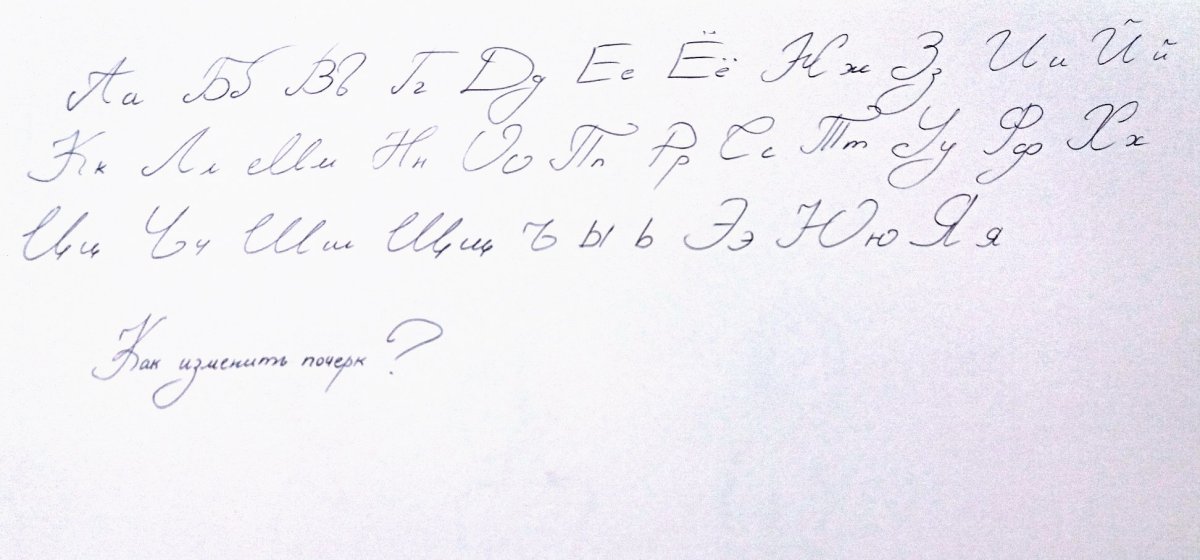 Аа Бб Вв Гг Дд Ее Ёё Жж Зз Ии Йй
Кк Лл Мм Нн Оо Пп Рр Сс Тт Уу Фф Хх
Цц Чч Шш Щщ Ъ Ы Ь Ээ Юю Яя
Как изменить почерк?